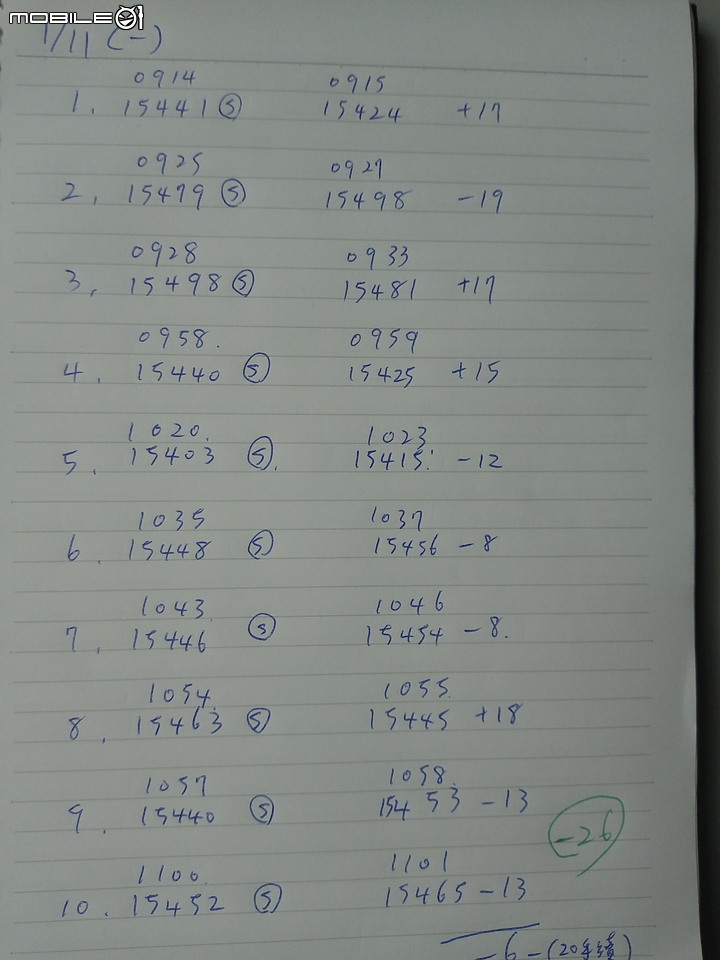 MOBILE01
1/11 (一)
0914 0915
1. 15441 Ⓢ 15424 +17
0925 0927
2. 15479 Ⓢ 15498 -19
0928 0933
3. 15498 Ⓢ 15481 +17
0958. 0959
4. 15440 Ⓢ 15425 +15
1020. 1023
5. 15403 Ⓢ. 15415. -12
1035 1037
6. 15448 Ⓢ 15456 -8
1043 1046
7. 15446 Ⓢ 15454 -8.
1054 1055
8. 15463 Ⓢ 15445 +18
1057 1058
9. 15440 Ⓢ 15453 -13
-26
1100 1101
10. 15452 Ⓢ 15465 -13
-6-(20手續)